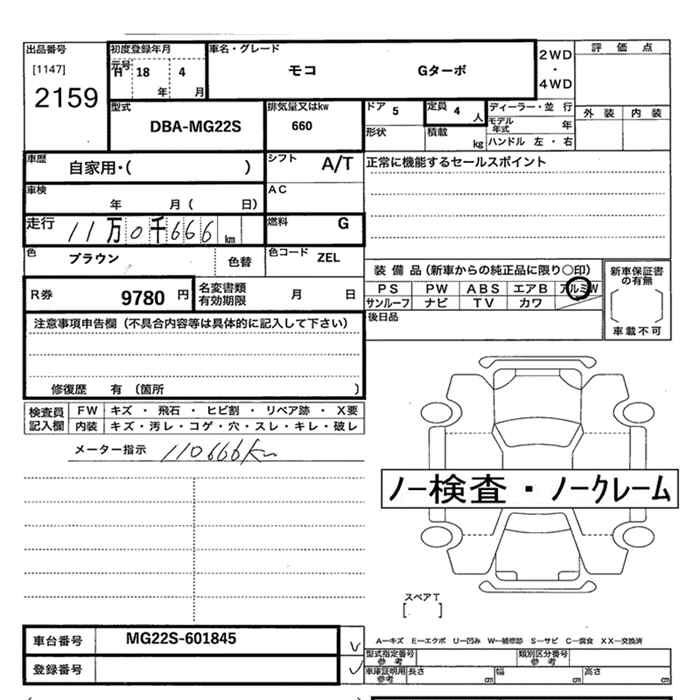 出品番号 初度登録年月 車名・グレード 2WD・4WD 評価点
[1147] 元号 H 18 年 4 月 モコ Gターボ
2159
型式 排気量又はkw ドア 5 定員 4 人 ディーラー・並 行 外装 内装
DBA-MG22S 660 形状 積載 kg モデル年式 年
ハンドル 左・右
車歴 自家用・( ) シフト A/T 正常に機能するセールスポイント
車検 年 月( 日) AC
走行 11万0千666km 燃料 G
色 ブラウン 色替 色コード ZEL
装備品(新車からの純正品に限り〇印) 新車保証書の有無
R券 9780 円 名変書類有効期限 月 日 PS PW ABS エアB アルミW
サンルーフ ナビ TV カワ 車載不可
注意事項申告欄(不具合内容等は具体的に記入して下さい) 後日品
修復歴 有 (箇所 )
検査員記入欄 FW キズ・飛石・ヒビ割・リペア跡・X要
内装 キズ・汚レ・コゲ・穴・スレ・キレ・破レ
メーター指示 110666km
ノー検査・ノークレーム
スペアT
[ ]
車台番号 MG22S-601845 A-キズ E-エクボ U-凹み W-補修跡 S-サビ C-腐食 XX-交換済
型式指定番号参考 類別区分番号参考
登録番号 車庫証明用参考 長さ cm 幅 cm 高さ cm